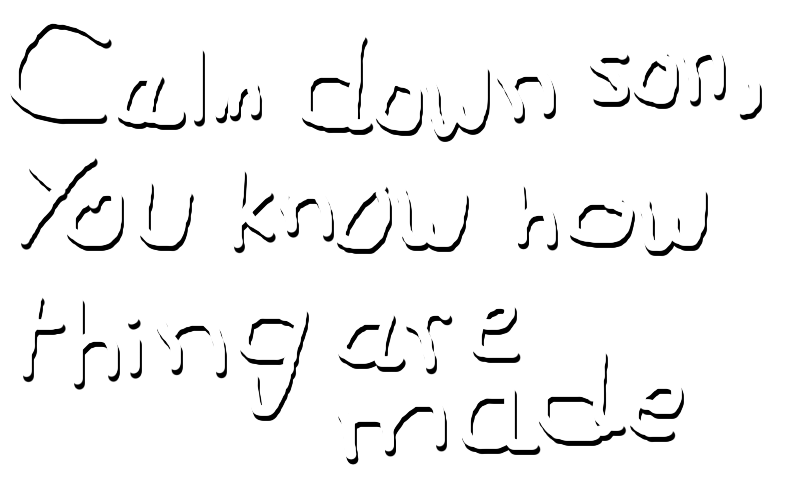 Calm down son,
You know how
thing are
made